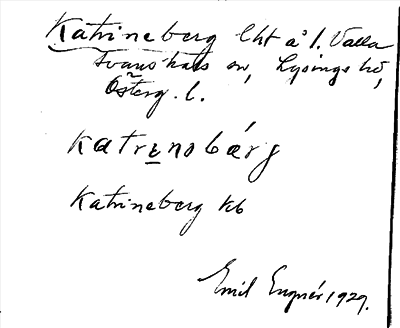 Katrineberg lht å l. Valla
Svanshals sn, Lysings hd,
Österg. l.
katrinəbárj
Katrineberg kb
Emil Engnér 1929.